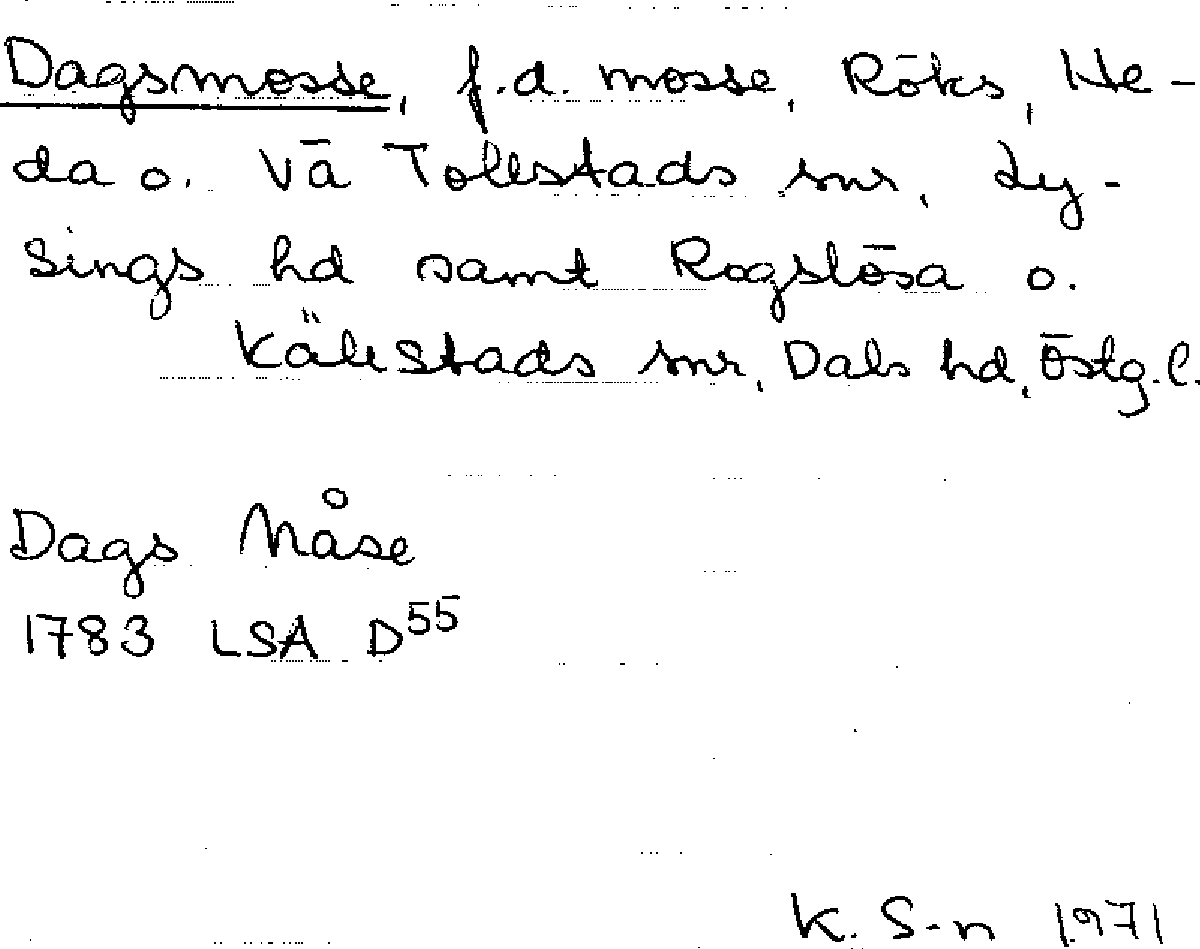 Dagsmosse, f.d. mosse, Röks, He-
da o. Vä Tollstads snr, Ly-
sings hd samt Rogslösa o.
Källstads snr, Dals hd, Östg.l.
Dags Måse
1783 LSA D55
K. S-n 1971